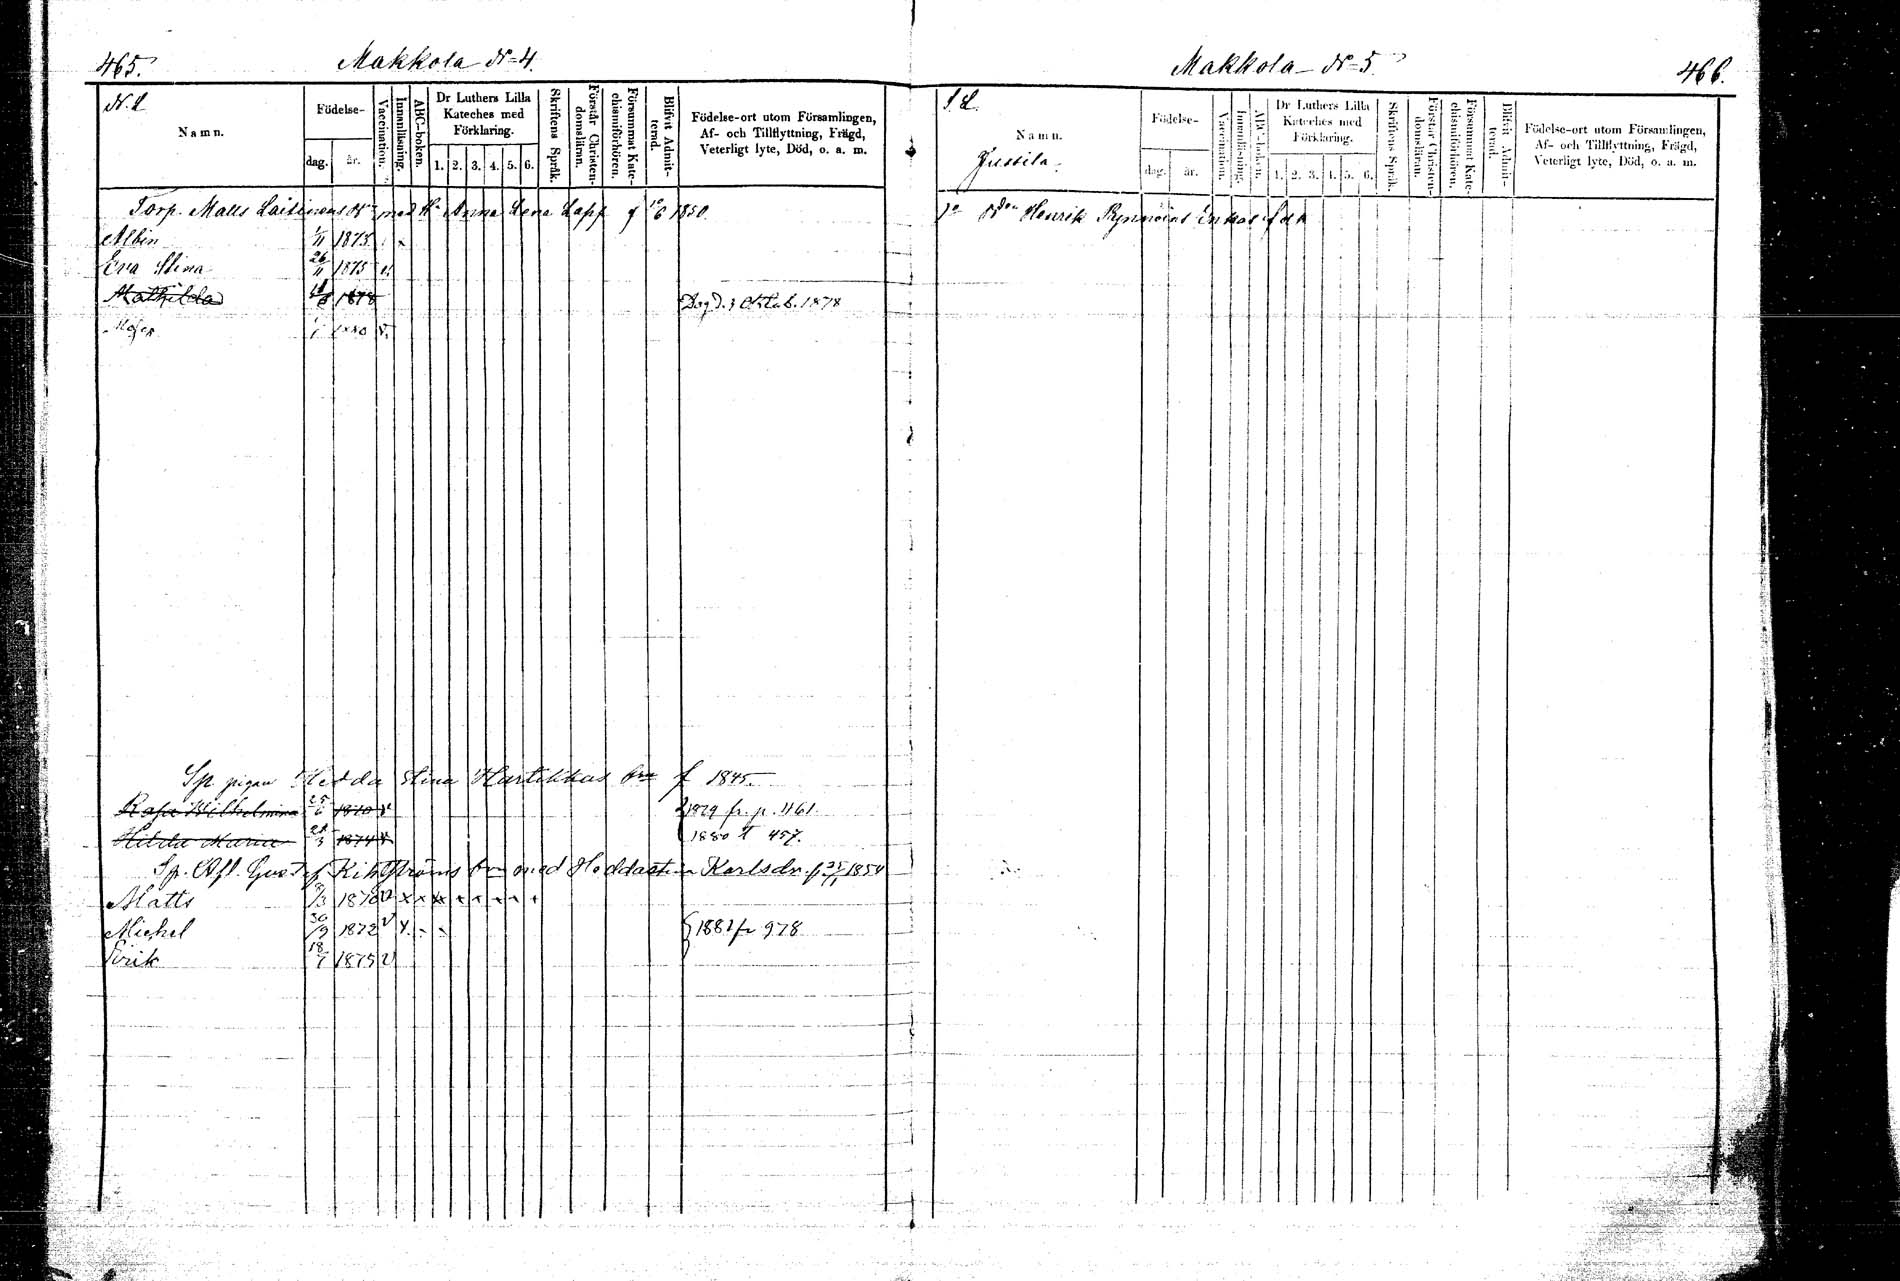 465.
Makkola No 4.
Namn.
Födelse-
dag.
år.
Vaccination.
Innanläsning.
ABC-boken.
Dr Luthers Lilla
Kateches med
Förklaring.
1. 2. 3. 4. 5. 6.
Skriftens Språk.
Förstår Christen-
domslärnn.
Försummat Kate-
chismiförhören.
Blifvit Admit-
terad.
Födelse-ort utom Församlingen,
Af- och Tillflyttning, Frägd,
Veterligt lyte, Död, o. a. m.
Torp. Matts Laitinens med Hu Anna Lena Lapp f 10/6 1850
Albin 1/11 1873
Eva Stina 26/11 1875 v.
Mathilda 1878 Dog d. 3 Oktob. 1878
Moses 1880 v.
Sp pigan Hedda Stina Hartikkas brn f 1845.
Rosa Wilhelmina 25/6 1870 v 1879 fr. p. 461
Hilda Maria 1874 v 1880 t 457.
Sp. Afl. Gustaf Kihlströms brn med Heddastina Karlsdr. f 25/11 1854
Matts 1870 v x x x x + + + + +
Michel 30/9 1872 v x. 1881 fr 978
Erik 18/7 1875 v
Makkola No 5.
466.
Namn.
Jussila.
Födelse-
dag.
år.
Vaccination.
Innanläsning.
ABC-boken.
Dr Luthers Lilla
Kateches med
Förklaring.
1. 2. 3. 4. 5. 6.
Skriftens Språk.
Förstår Christen-
domsläran.
Försummat Kate-
chismiförhören.
Blifvit Admit-
terad.
Födelse-ort utom Församlingen,
Af- och Tillflyttning, Frägd,
Veterligt lyte, Död, o. a. m.
Henrik Rynnöins Enkas